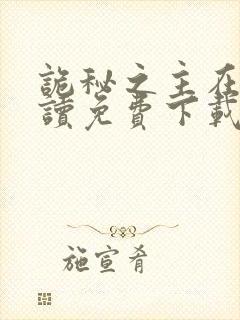 詭秘之主在
讀免費下載
施宣肴